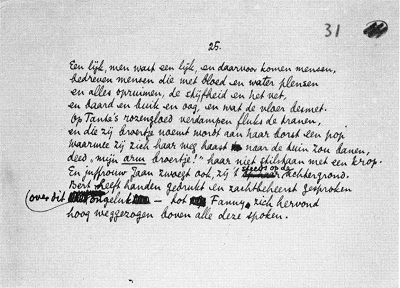 31
25.
Een lijk, men wast een lijk, en daarvoor komen mensen,
bedreven mensen die met bloed en water plensen
en alles opruimen, de stijfheid en het vet,
en baard en buik en oog, en wat de vloer besmet.
Op Tante's rozengloed verdampen fluks de tranen,
en die zij broertje noemt wordt aan haar borst een pop
waarmee zij zich haar weg haast naar de tuin zou banen,
deed „mijn arm broertje!" haar niet stilstaan met een krop.
En juffrouw Jaan zwoegt ook, zij 't steeds op de achtergrond.
Bert heeft handen gedrukt en zachtbeheerst gesproken
(over dit ongeluk — tot Fanny zich hervond
hoog weggezogen boven alle deze spoken.